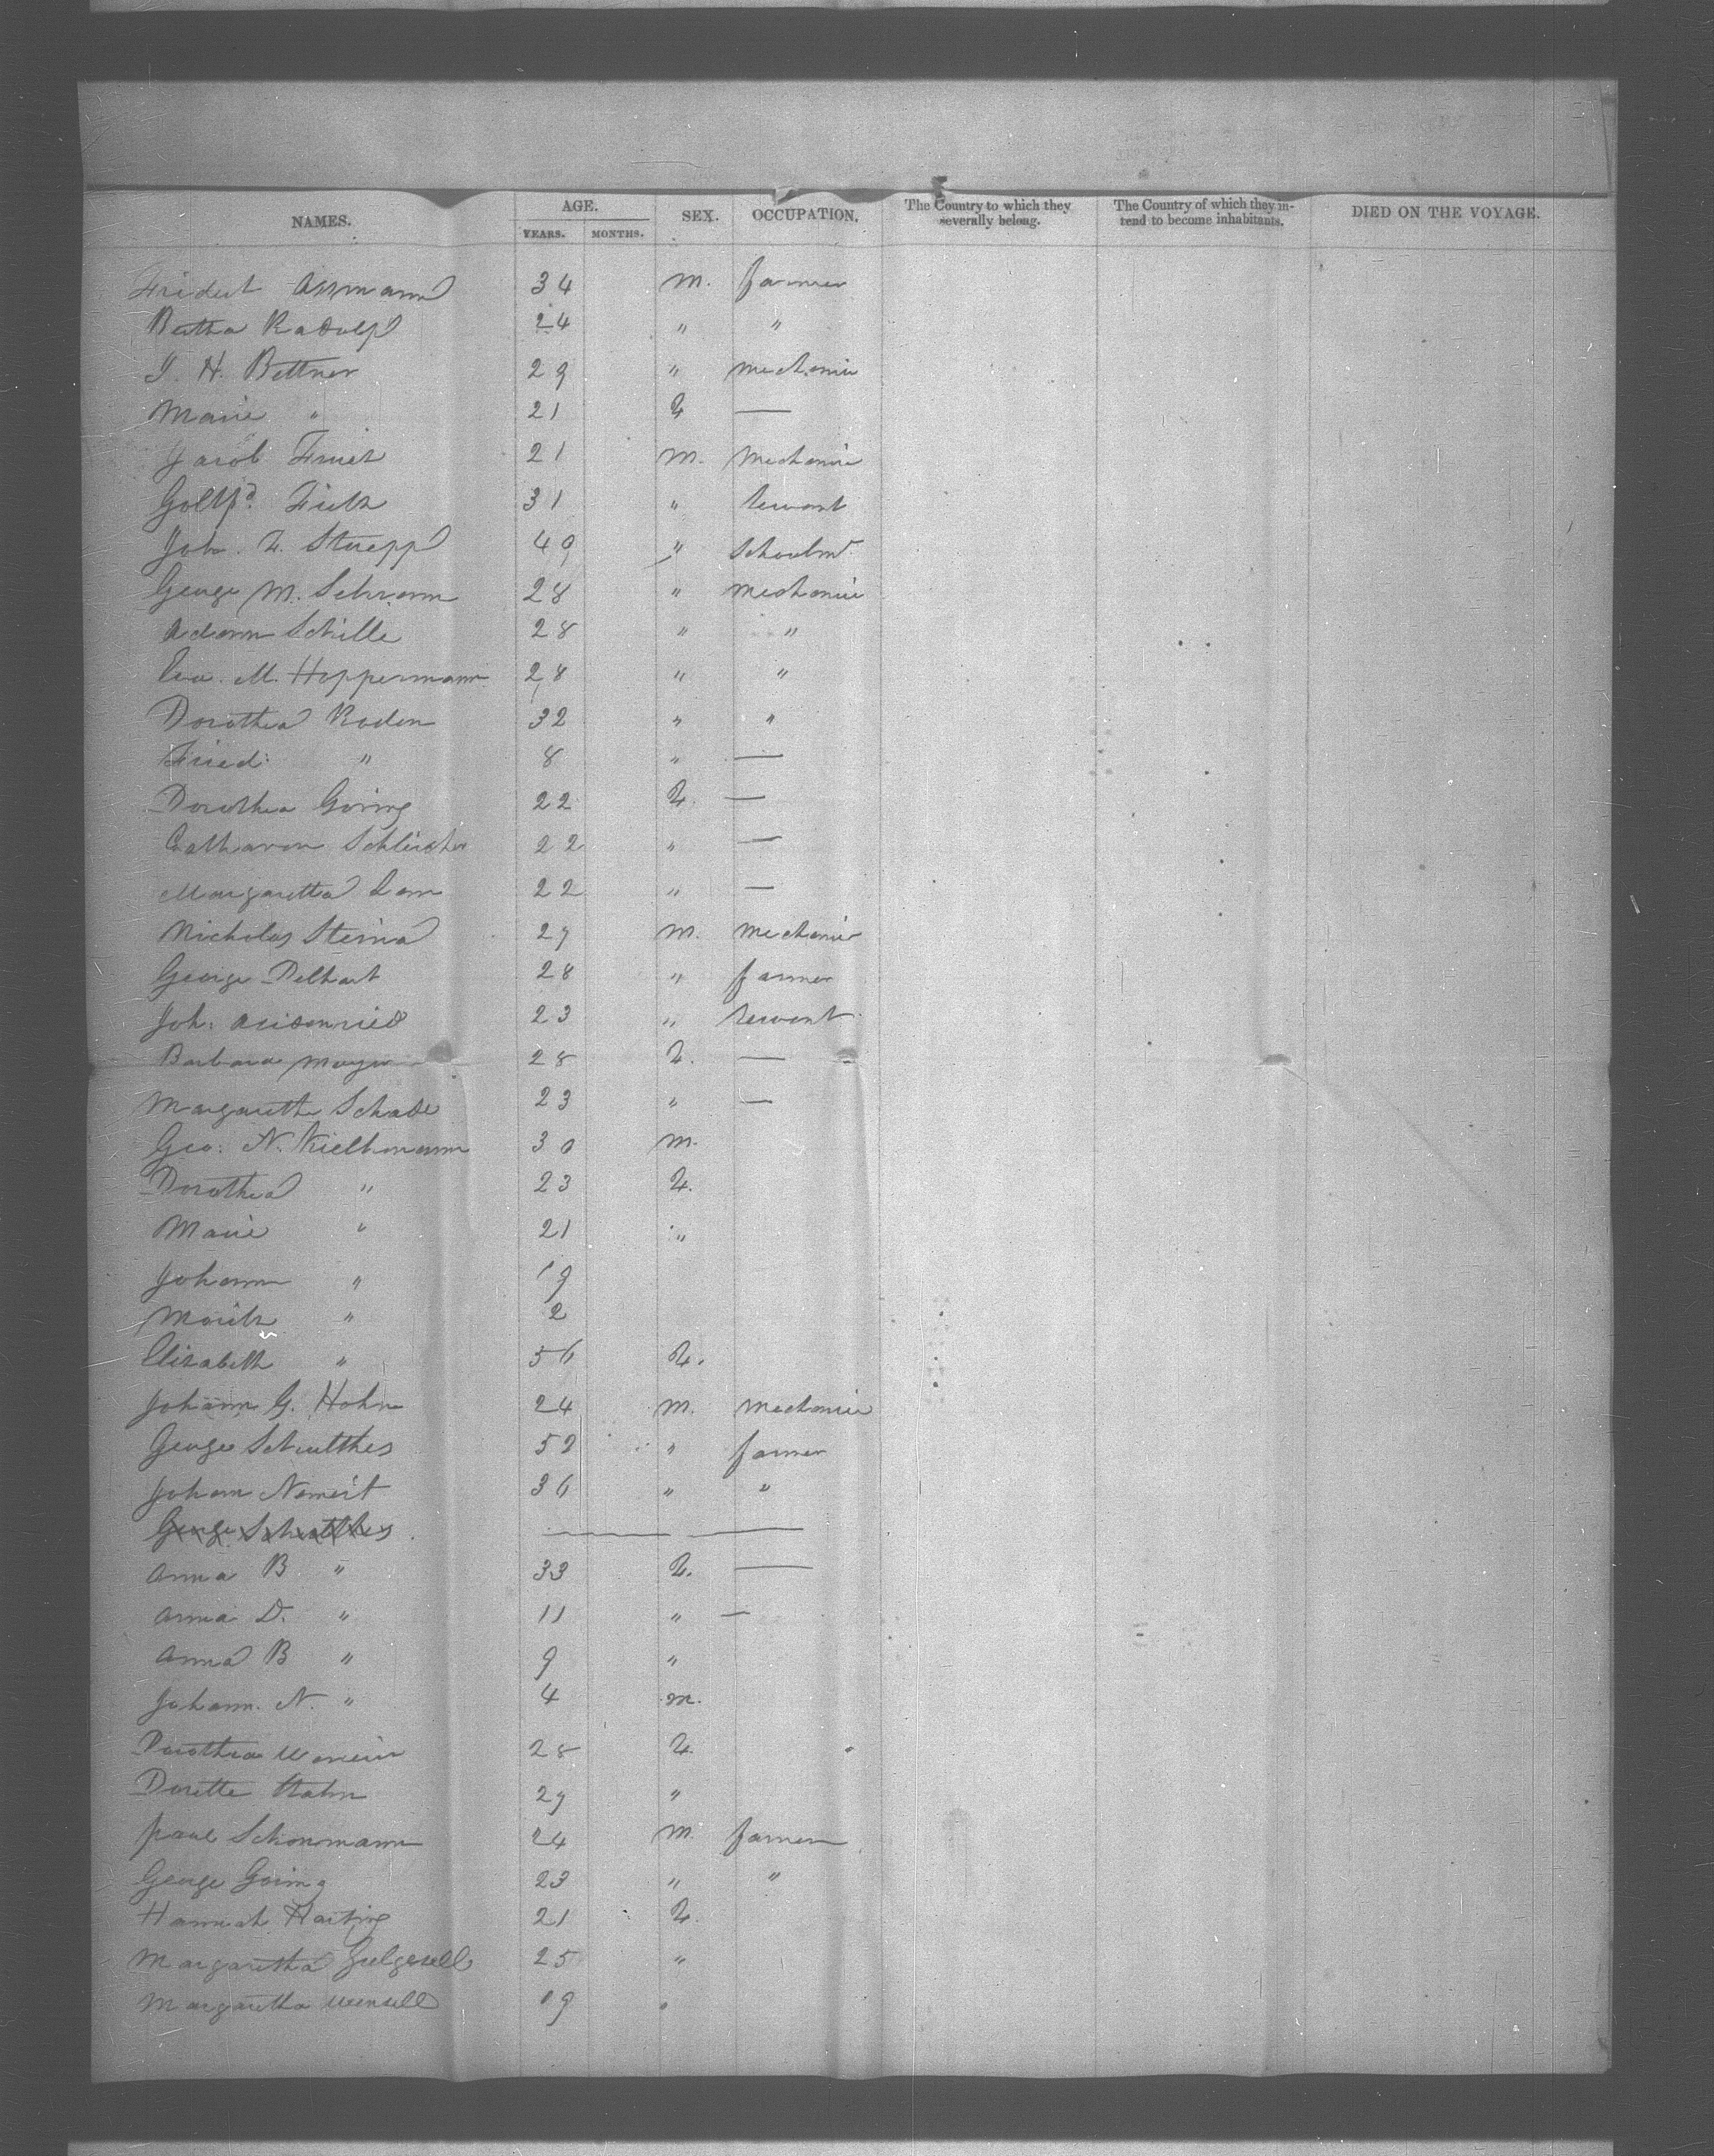 NAMES. AGE. YEARS. MONTHS. SEX. OCCUPATION. The Country to which they severally belong. The Country of which they intend to become inhabitants. DIED ON THE VOYAGE.
Assmann 34 m. farmer
Bertha Radolph 24 " "
J. H. Bettner 29 " mechanic
Marie " 21 F —
Jacob 21 m. mechanic
31 " servant
Joh. F. 40 "
George M. Schramm 28 " mechanic
Adam Schille 28 " "
Eva. M. Hoppermann 28 " "
Dorothea Roden 32 " "
Fried: " 8 " —
Dorothea Göring 22 F. —
Catharon Schleicher 22 " —
Margaretta 22 " —
Nicholas 27 m. mechanic
George 28 " farmer
Joh: 23 " servant
Barbara Mayer 28 F. —
Margareth Schade 23 " —
Geo: N. 30 m.
Dorothea " 23 F.
Marie " 21 "
Johann " 19
Moritz " 2
Elizabeth " 56 F.
Johann G. Hohn 24 m. mechanic
George Schulthes 52 " farmer
Johann 36 " "
George Schulthes — —
Anna B " 33 F. —
Anna D. " 11 " —
Anna B " 9 "
Johann. N. " 4 m.
Dorothea 28 F.
Dorette Hahn 27 "
Paul Schonemann 24 m. farmer
George Göring 23 " "
Hannah Harting 21 F.
Margaretha 25 "
Margaretha 19